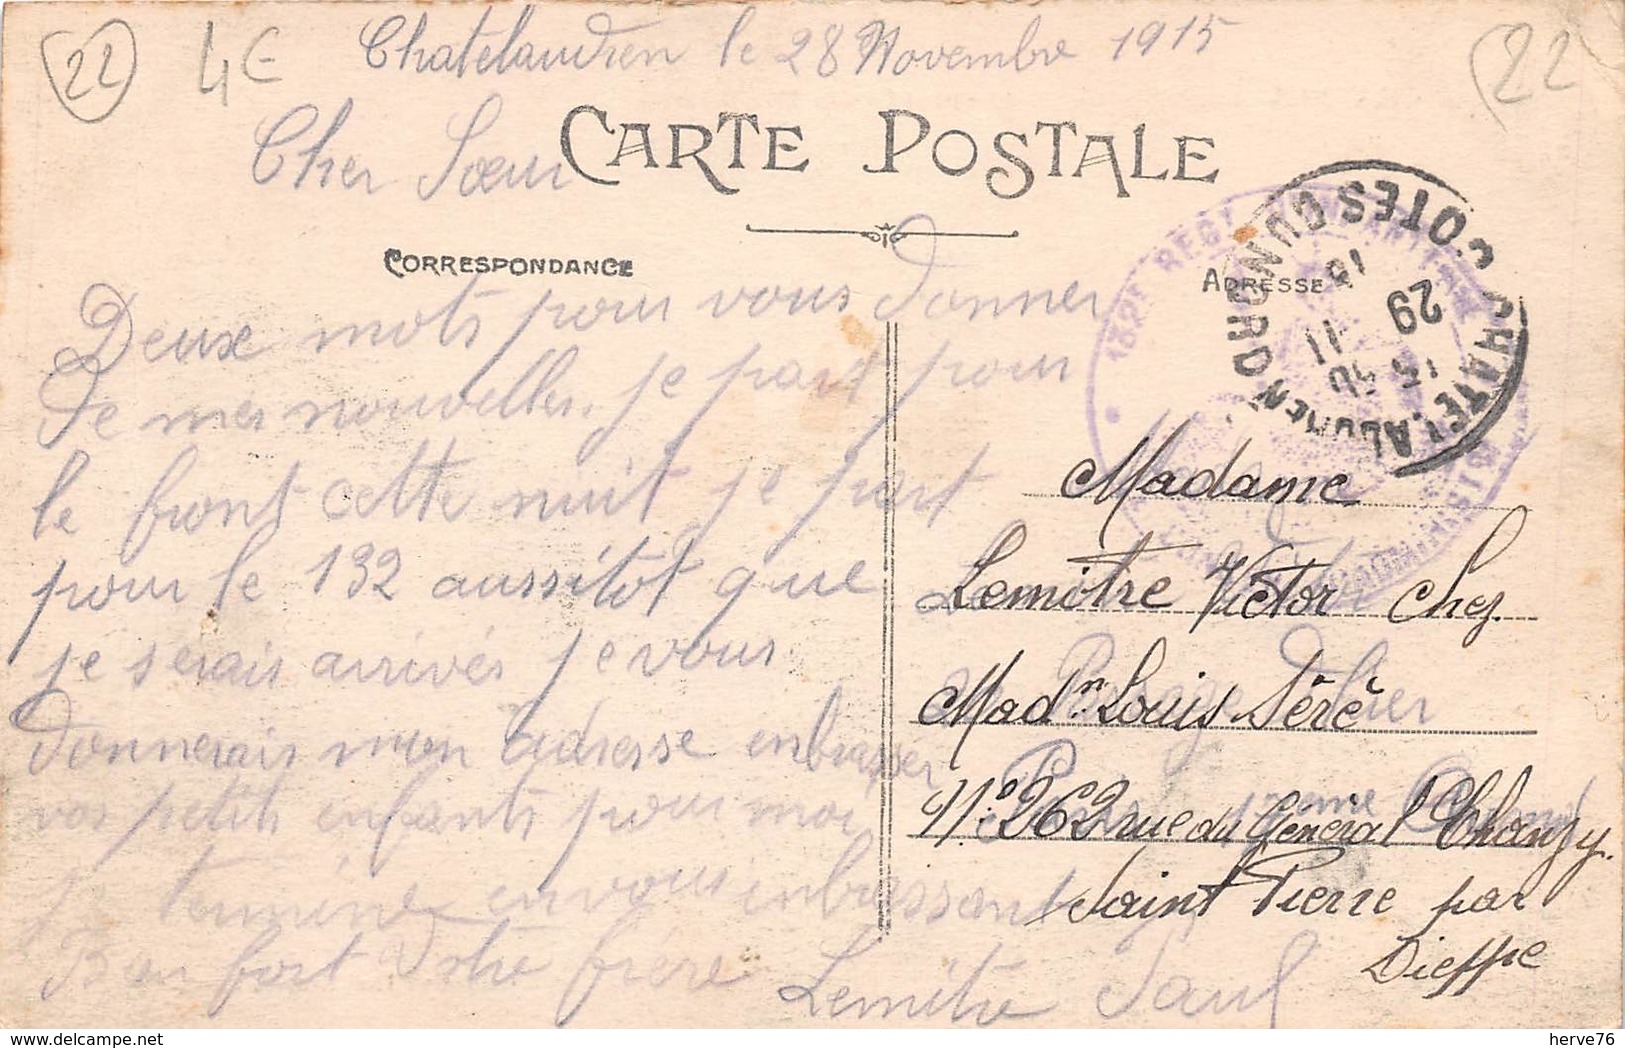 22
4€
Chatelaudren le 28 Novembre 1915
22
CARTE POSTALE
Cher Sœur
CORRESPONDANCE
ADRESSE
Deux mots pour vous donner
de mes nouvelles, je part pour
le front cette nuit je part
pour le 132 aussitot que
je serais arrivés je vous
donnerais mon adresse enbrasser
vos petits enfants pour moi
je termine en vous enbrassant
Bien fort Votre frère
Lemitre Paul
132E REGT D'INFANTERIE
CHATELAUDREN
COTES DU NORD
29
11
15
Madame
Lemitre Victor Chez
Madn. Louis Séré
N:º 262 rue du Général Chanzy.
Saint Pierre par
Dieppe
herve76